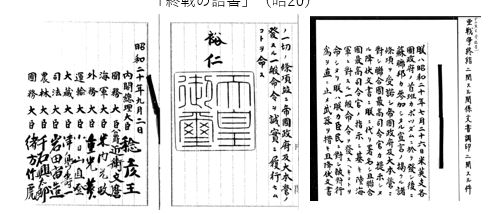 「終戦の詔書」(昭20)
亜戦争終結ニ関スル関係文書調印ニ関スル件
朕ハ昭和二十年七月二十六日米英支各
国政府ノ首班カポツダムニ於テ発シ後ニ
蘇聯邦カ参加シタル宣言ノ掲クル諸
條項ヲ受諾シ帝国政府及大本営ニ
対シ聯合国最高司令官カ提示シタ
ル降伏文書ニ朕ニ代リ署名シ且聯合
国最高司令官ノ指示ニ基キ陸海
軍ニ対スル一般命令ヲ発スヘキコトヲ
命シタリ朕ハ朕カ臣民ニ対シ敵対行
為ヲ直ニ止メ武器ヲ措キ且降伏文書
ノ一切ノ條項並ニ帝国政府及大本営ノ
発スル一般命令ヲ誠実ニ履行セム
コトヲ命ス
裕仁
天皇
御璽
昭和二十年九月二日
内閣総理大臣 稔彦王
国務大臣 公爵近衛文麿
海軍大臣 米内光政
外務大臣 重光葵
運輸大臣 小日山直登
大蔵大臣 津島壽一
司法大臣 岩田宙造
農林大臣 千石興太郎
国務大臣 緒方竹虎